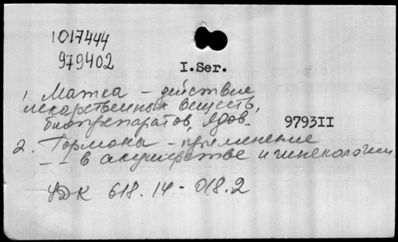 1017444
979402
I.Ser.
1. Матка – действие
лекарственных веществ,
биопрепаратов, ядов.
979311
2. Гормоны – применение
– I – в акушерстве и гинекологии
УДК 618.14-018.2